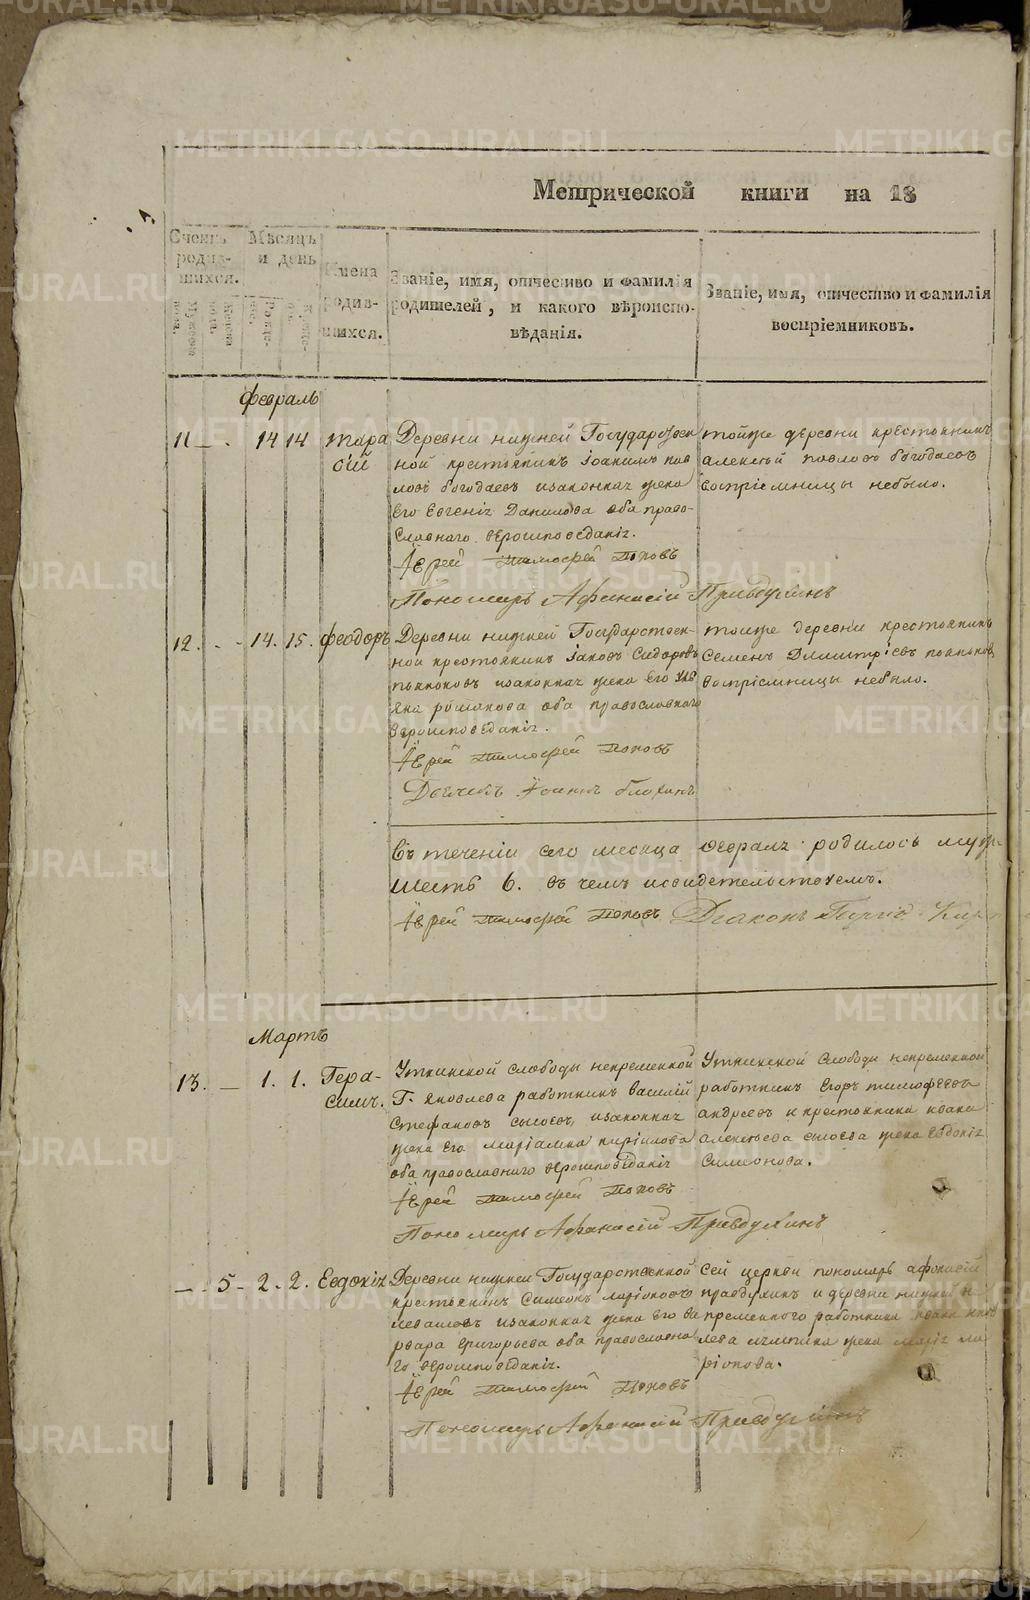 Метрической книги на 18
Счетъ родив-шихся.
Мѣсяцъ и день
Имена родив-шихся.
Званіе, имя, отчество и фамилія родителей, и какого вѣроиспо-вѣданія.
Званіе, имя, отчество и фамилія воспріемниковъ.
Февраль
11 — . 14 14 Тара
сій
Деревни нижней Государствен
ной крестьянинъ Іоакимъ пав
ловъ богодаевъ изаконная жена
Его Евгенія Данилова оба право-
Славнаго верошповеданія.
Іерей Тимофей Поповъ
Пономарь Афанасій Правдухинъ
тойже деревни крестьянинъ
алексѣй павловъ богодаевъ
воспріемницы небыло.
12. . - 14. 15. Феодоръ
Деревни нижней Государствен-
ной крестьянинъ Іаковъ Сидоровъ
пьянковъ изаконная жена Его Уль
яна романова оба православнаго
верошповеданія.
Іерей Тимофей Поповъ
Дьячекъ Іоаннъ блохинъ
тойже деревни крестьянинъ
Семенъ Димитріевъ пьянковъ
воспріемницы небыло.
въ теченіи сего месяца февраля родилось муж
шесть 6. въ чемъ исвидетельствуемъ.
Іерей Тимофей Поповъ Діаконъ
Мартъ
13. — 1. 1. Гера-
симъ.
Уткинской слободы непременной
Г. Яковлева работникъ василій
Стефановъ сысоевъ, изаконная
жена Его маріамна кирилова
оба православнаго верошповѣданія
Іерей Тимофей Поповъ
Пономарь Афанасій Правдухинъ
Уткинской Слободы непременной
работникъ Егоръ тимофеевъ
андреевъ и крестьянина ивана
алексѣева сысоева жена Евдокія
Симеонова.
— 5 - 2. 2. Евдокія
Деревни нижней Государственной
крестьянинъ Симеонъ ларіоновъ
левашевъ изаконная жена Его ва
рвара григорьева оба православна
го верошповеданія.
Іерей Тимофей Поповъ
Пономарь Афанасій Правдухинъ
Сей церкви пономарь афонасій
правдухинъ и деревни нижней не
пременнаго работника ивана
лева жена марія ла
ріонова.
METRIKI.GASO-URAL.RU